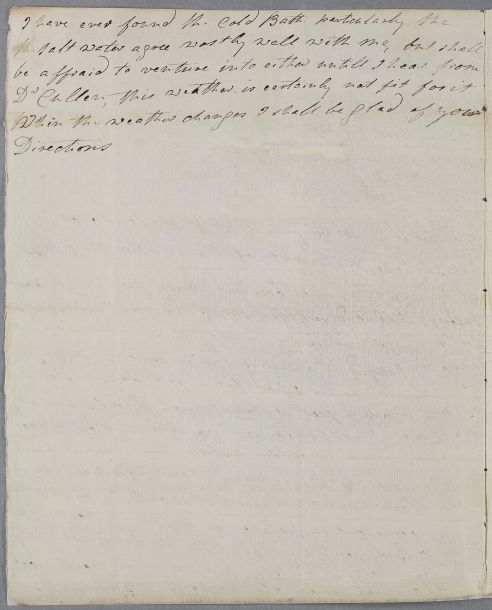 I have ever found the Cold Bath particularly the
the salt water agree vastly well with me, but shall
be affraid to venture into either untill I hear from
Dr Cullen, this weather is certainly not fit for it
When the weather changes I shall be glad of your
Directions